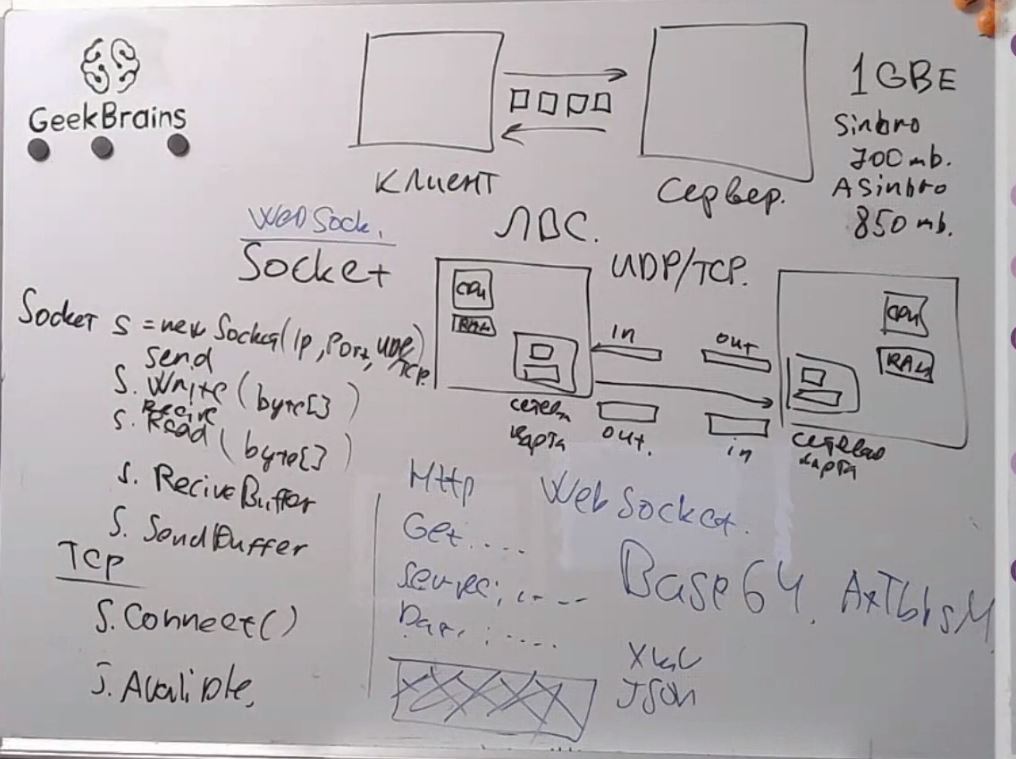 GeekBrains
Клиент
Сервер.
1GBE
Sinhro
700 mb.
ASinhro
850 mb.
ЛВС.
WebSock.
Socket
UDP/TCP.
CPU
RAM
in
out
out.
in
CPU
RAM
сетевая
карта
Socket S = new Socket (Ip, Port, UDP/TCP)
Send
S. Write (byte[])
Recive
S. Read (byte[])
S. ReciveBuffer
S. SendBuffer
TCP
S. Connect()
S. Avalible,
Http
Get ....
WebSocket.
Base64.
XML
JSON